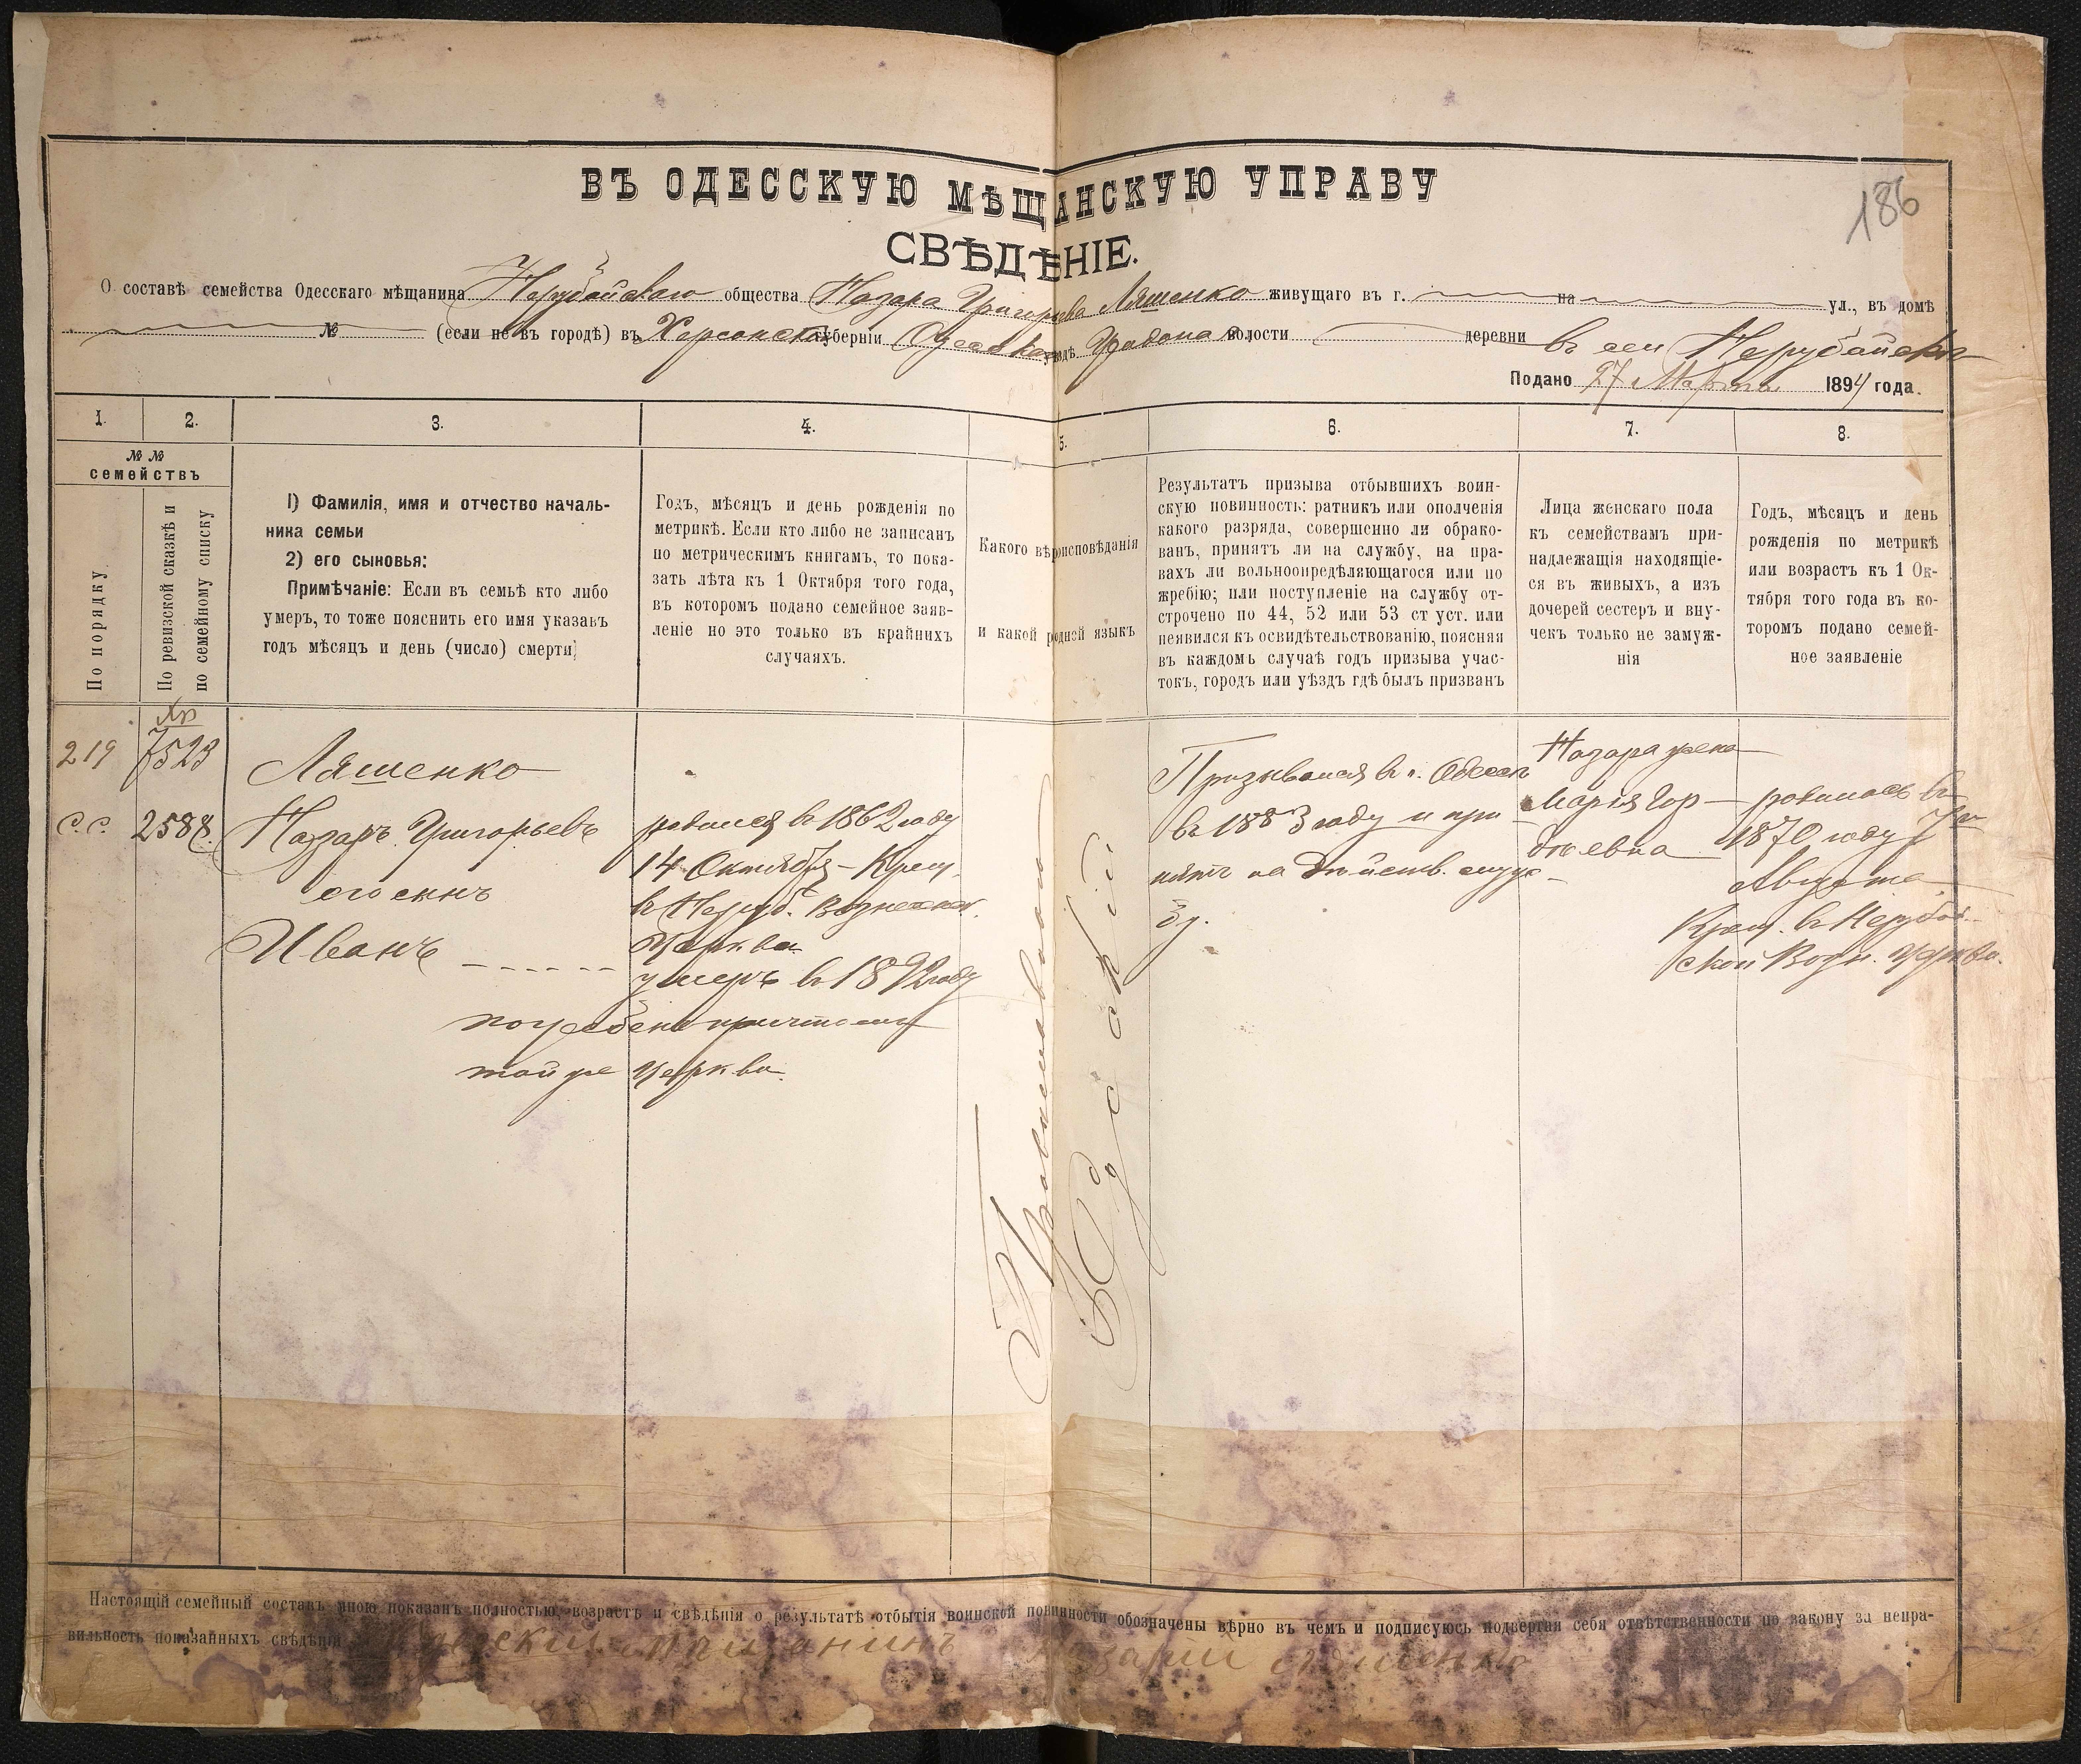 186
ВЪ ОДЕССКУЮ МѢЩАНСКУЮ УПРАВУ
СВѢДѢНІЕ.
О составѣ семейства Одесскаго мѣщанина Нерубайскаго общества Назара Григорьева Ляшенко живущаго въ г. на ул., въ домѣ
№ (если не въ городѣ) въ Херсонской губерніи Одесскаго уѣздѣ волости деревни въ сел Нерубайскѣ
Подано 27 Марта 1894 года.
1.
2.
3.
4.
5.
6.
7.
8.
№ №
семействъ
По порядку.
По ревизской сказкѣ и
по семейному списку
1) Фамилія, имя и отчество началь-
ника семьи
2) его сыновья:
Примѣчаніе: Если въ семьѣ кто либо
умеръ, то тоже пояснить его имя указавъ
годъ мѣсяцъ и день (число) смерти;
Годъ, мѣсяцъ и день рожденія по
метрикѣ. Если кто либо не записанъ
по метрическимъ книгамъ, то пока-
зать лѣта къ 1 Октября того года,
въ которомъ подано семейное заяв-
леніе но это только въ крайнихъ
случаяхъ.
Какого вѣроисповѣданія
и какой родной языкъ
Результатъ призыва отбывшихъ воин-
скую повинность: ратникъ или ополченія
какого разряда, совершенно ли обрако-
ванъ, принятъ ли на службу, на пра-
вахъ ли вольноопредѣляющагося или по
жребію; или поступленіе на службу от-
строчено по 44, 52 или 53 ст уст. или
неявился къ освидѣтельствованію, поясняя
въ каждомъ случаѣ годъ призыва учас-
токъ, городъ или уѣздъ гдѣ былъ призванъ
Лица женскаго пола
къ семействамъ при-
надлежащія находящіе-
ся въ живыхъ, а изъ
дочерей сестеръ и вну-
чекъ только не замуж-
нія
Годъ, мѣсяцъ и день
рожденія по метрикѣ
или возрастъ къ 1 Ок-
тября того года въ ко-
торомъ подано семей-
ное заявленіе
219
7523
с.с. 2588.
Ляшенко
Назаръ Григорьевъ
его сынъ
Иванъ
родился въ 1862 году
14 Октября - Крещ.
въ Неруб. Вознесен.
Церкви
умеръ въ 1892 году
погребенъ причтомъ
той же церкви.
Православнаго
Русскій
Призывался въ г. Одессѣ
въ 1883 году и при-
нятъ на дѣйств. служ-
бу.
Назара жена
Марія Гор-
дѣевна
родилась въ
1870 году 7го
Августа
Крещ. въ Неруб
ской Возн. Церкви.
Настоящій семейный составъ мною показанъ полностью, возрастъ и свѣдѣнія о результатѣ отбытія воинской повинности обозначены вѣрно въ чемъ и подписуюсь подвергая себя отвѣтственности по закону за непра-
вильность показанныхъ свѣдѣній мѣщанинъ Назарій Ляшенко